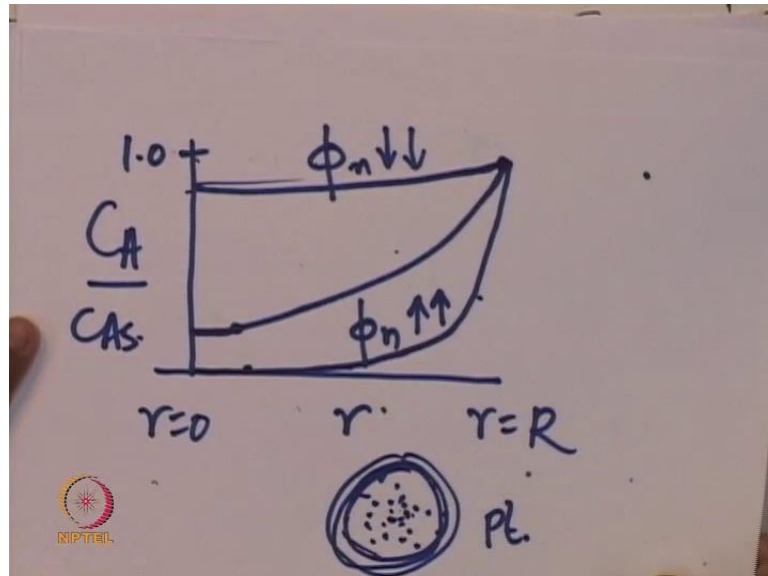 1.0
ϕn ↓↓
CA
CAs.
ϕn ↑↑
r=0 r. r=R
Pt.
NPTEL